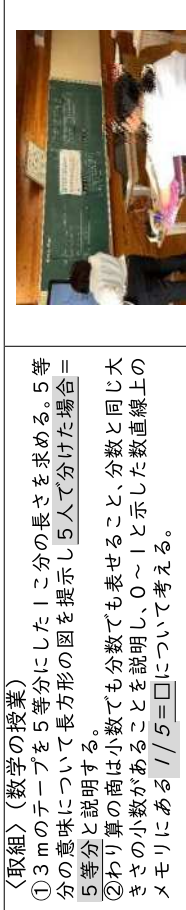 〈取組〉(数学の授業)
①3mのテープを5等分にした1こ分の長さを求める。5等
分の意味について長方形の図を提示し5人で分けた場合=
5等分と説明する。
②わり算の商は小数でも分数でも表せること、分数と同じ大
きさの小数があることを説明し、0~1と示した数直線上の
メモリにある1/5=□について考える。